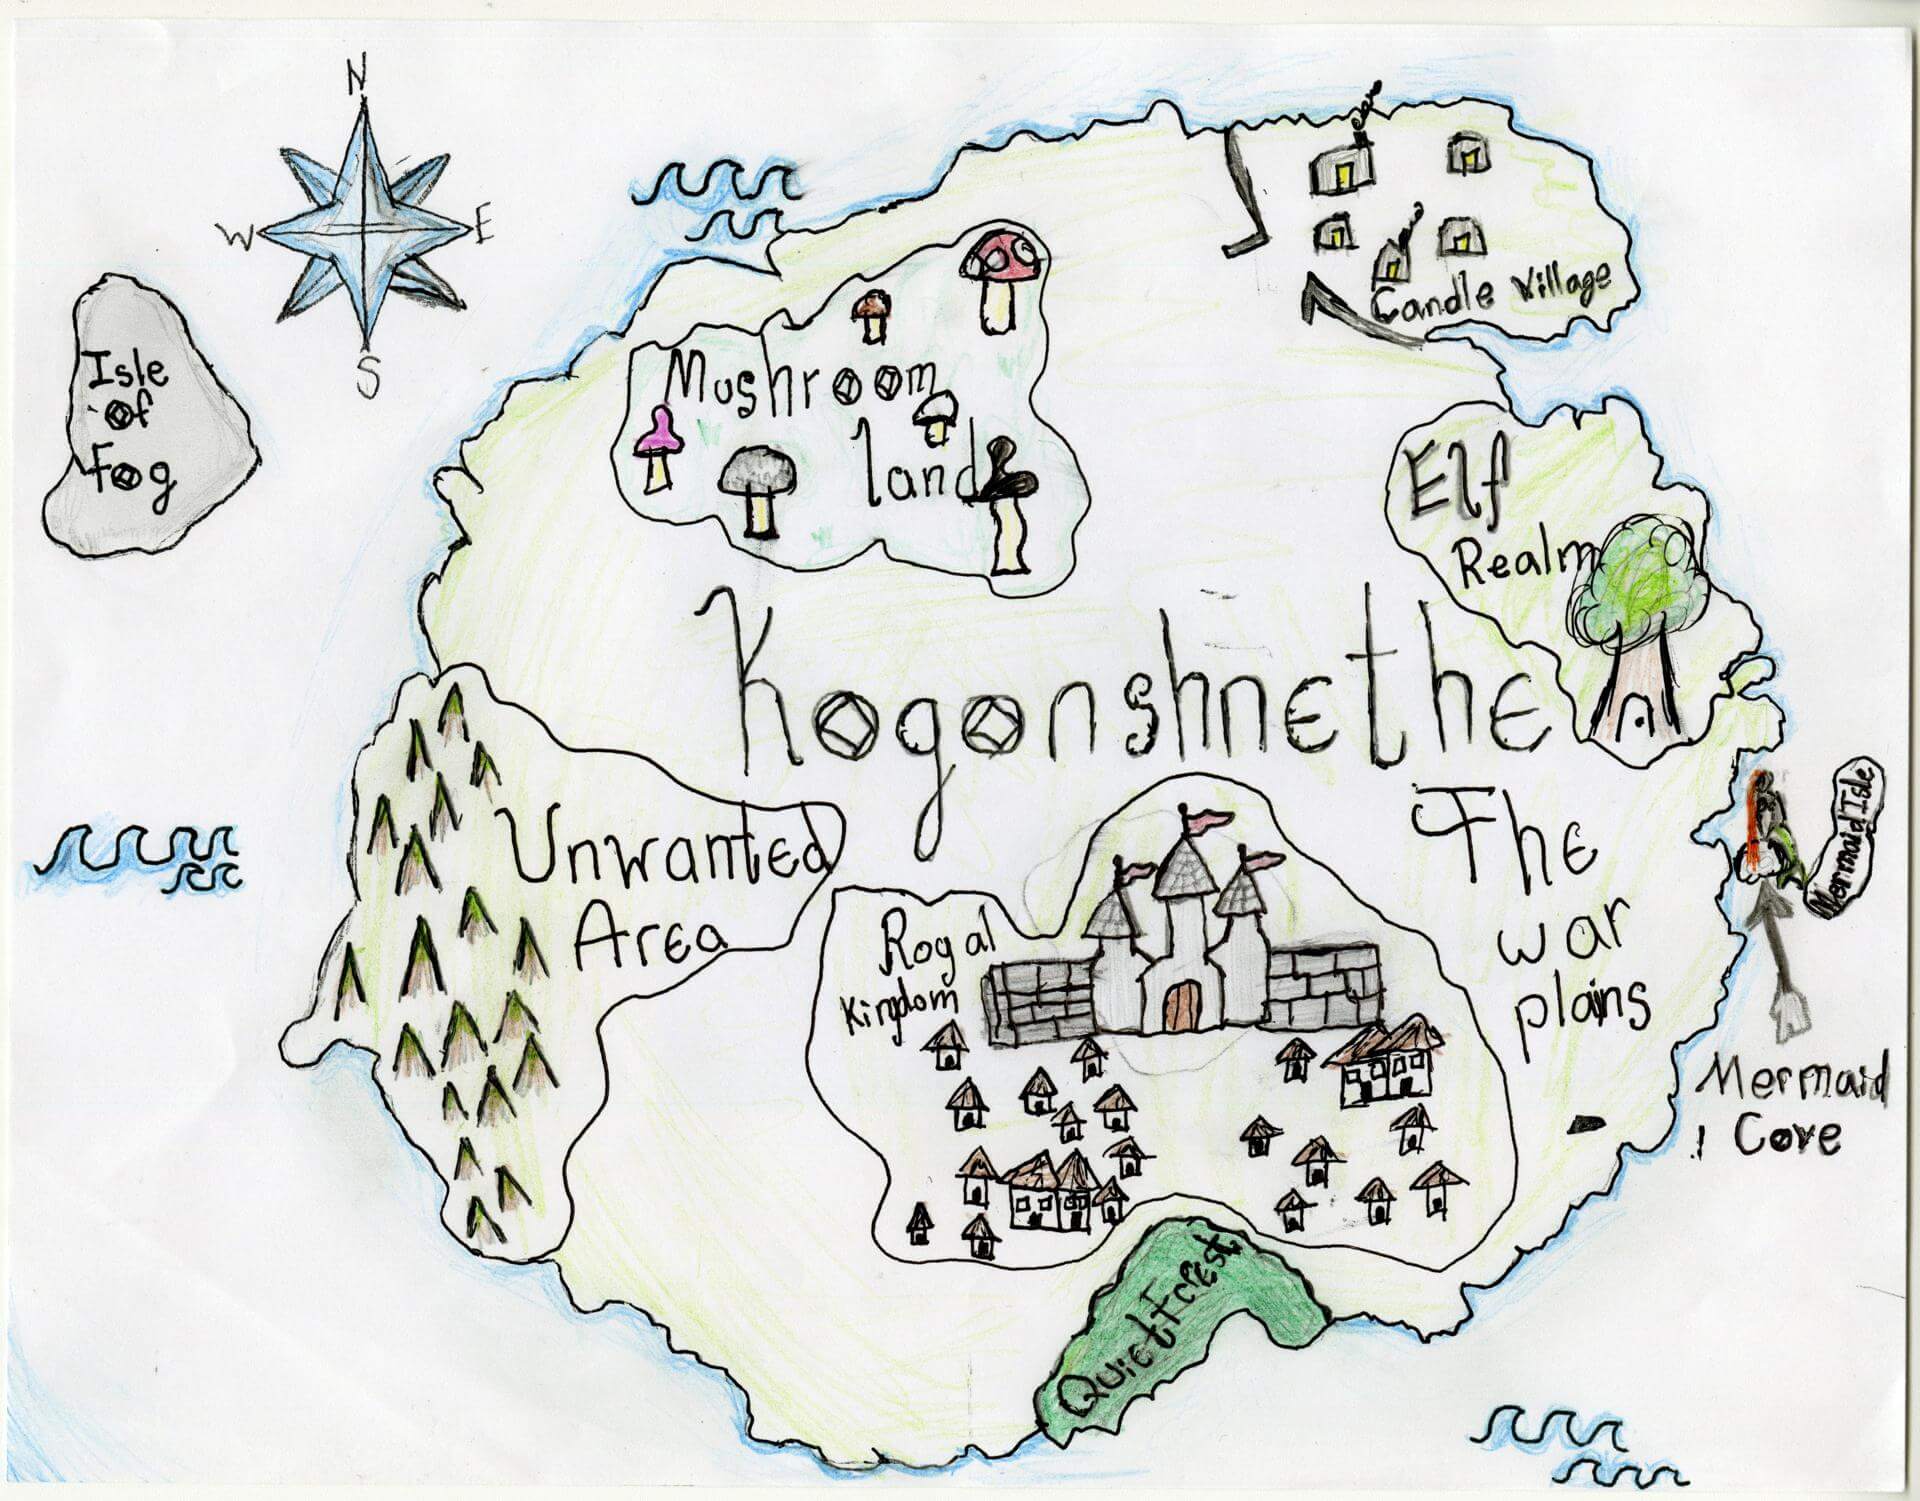 N
W E
S
Isle
of
Fog
Candle Village
Mushroom
land
Elf
Realm
Kogonshnethe
Unwanted
Area
The
war
plains
Mermaid Isle
Royal
Kingdom
Mermaid
Cove
Quiet Forest